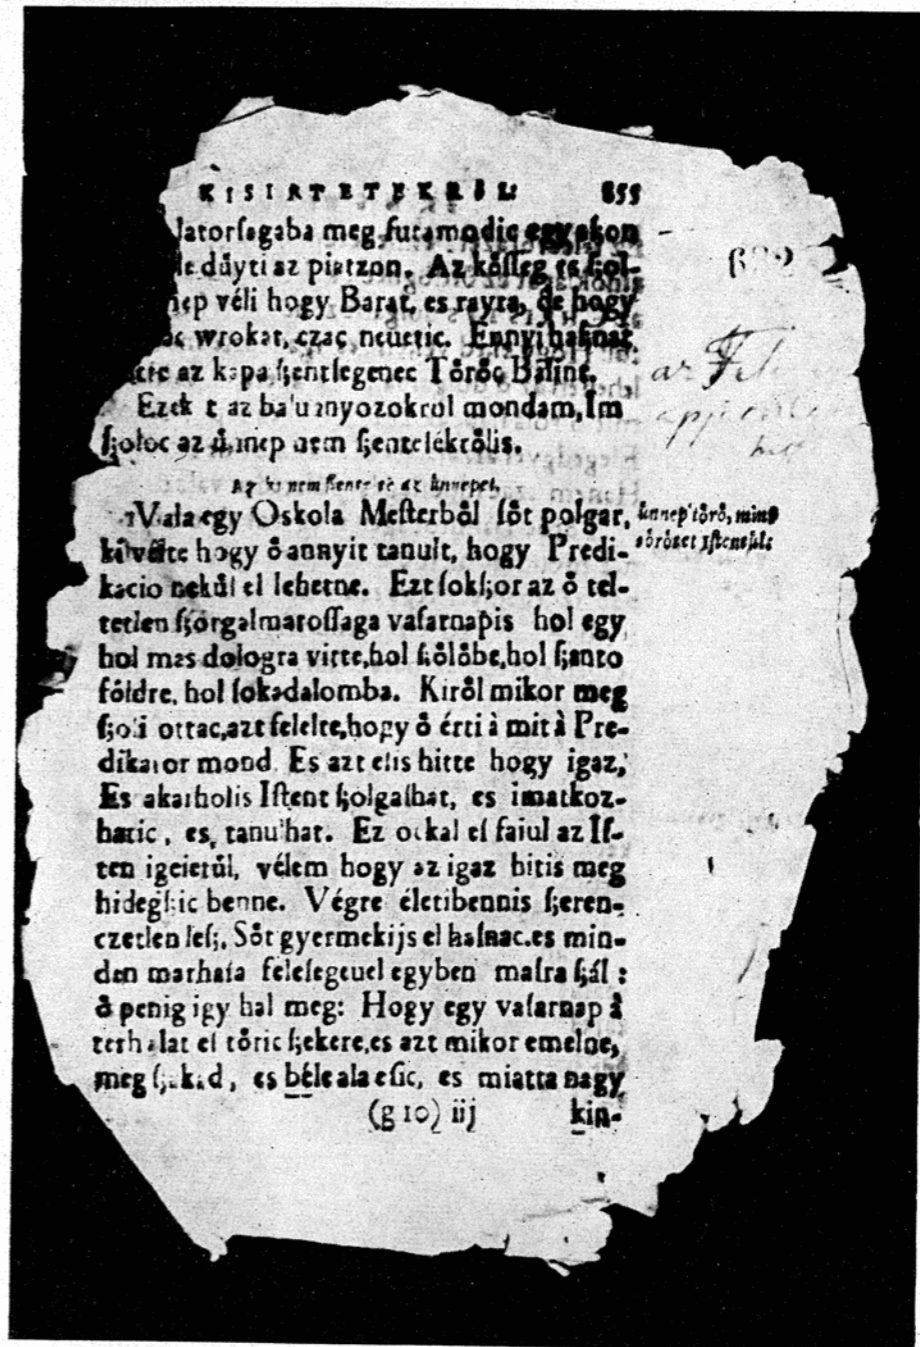 KISIRTETEKRÖL: 855
latorſagaba meg futamodic egyſkon
le důyti az piatzon. Az kôſſeg es ſzol-
nep véli hogy Barat, es rayta, de hogy
wrokat, czac neuetic. Ennyi haſnat
az kapa ſzentſegenec Tôrôc Balint.
Ezek t az ba'uanyozokrol mondam, Im
ſzoloc az ůnnep nem ſzentelékrôlis.
Az ki nem ſzente az ůnnepet.
Vala egy Oskola Meſterbôl lôt polgar,
ki vélte hogy ô annyit tanult, hogy Predi-
kacio nekůl el lehetne. Ezt ſokſzor az ô tel-
tetlen ſzorgalmatoſſaga vaſarnapis hol egy
hol mas dologra vitte, hol ſzôlôbe, hol ſzanto
fóldre, hol ſokadalomba. Kirôl mikor meg
ſzoli ottac, azt felelte, hogy ô érti à mit à Pre-
dikator mond. Es azt elis hitte hogy igaz,
Es akarholis Iſtent ſzolgalhat, es imatkoz-
hatic, es tanu'hat. Ez okkal el faiul az Iſ-
ten igeietůl, vélem hogy az igaz hitis meg
hidegſzic benne. Végre életibennis ſzeren-
czetlen leſz. Sôt gyermekijs el haſnac. es min-
den marhaia feleſegeuel egyben maſra ſzál:
ô penig igy hal meg: Hogy egy vaſarnap à
terh alat el tôric ſzekere, es azt mikor emelne,
meg ſzakad, es béle ala eſic, es miatta nagy
(g 10) iij kin-
ůnnep tôrô, mint